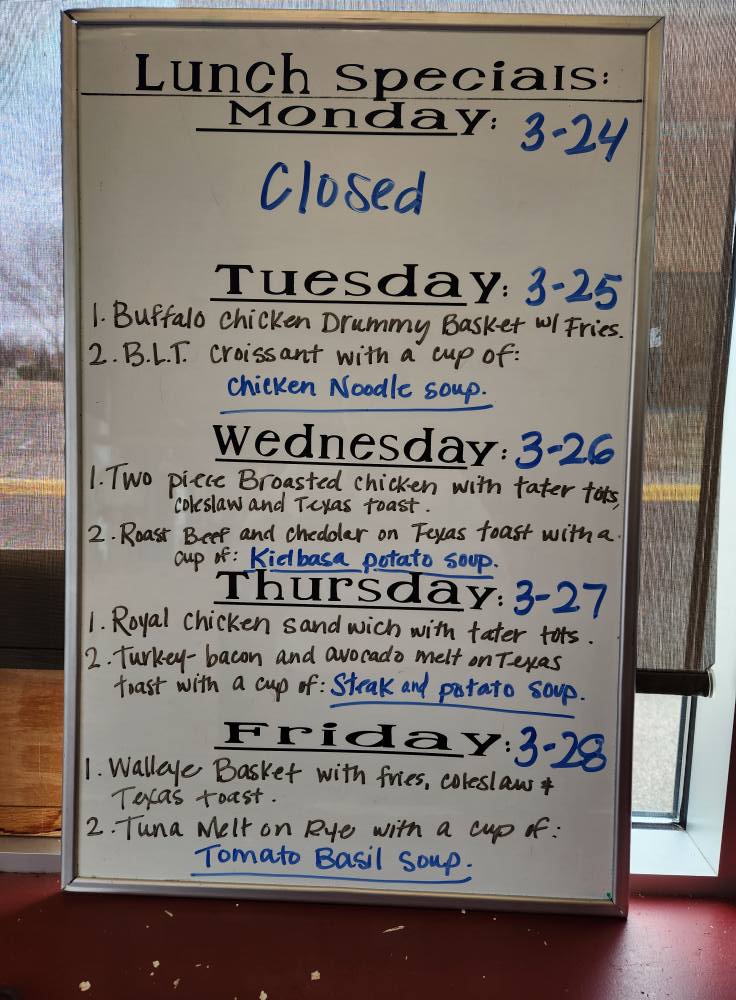 Lunch Specials:
Monday: 3-24
Closed
Tuesday: 3-25
1. Buffalo Chicken Drummy Basket w/ Fries.
2. B.L.T. Croissant with a cup of:
Chicken Noodle soup.
Wednesday: 3-26
1. Two piece Broasted chicken with tater tots,
coleslaw and Texas toast.
2. Roast Beef and cheddar on Texas toast with a
cup of: Kielbasa potato soup.
Thursday: 3-27
1. Royal Chicken Sandwich with tater tots.
2. Turkey-bacon and avocado melt on Texas
toast with a cup of: Steak and potato soup.
Friday: 3-28
1. Walleye Basket with fries, coleslaw &
Texas toast.
2. Tuna Melt on Rye with a cup of:
Tomato Basil Soup.